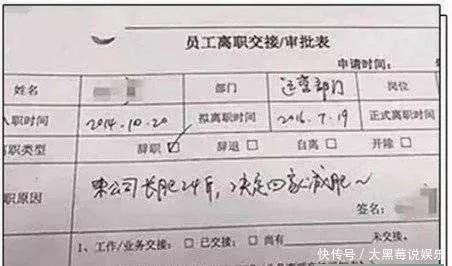 员工离职交接/审批表
申请时间:
姓名 部门 运营部门 岗位
入职时间 2014.10.20 拟离职时间 2016.7.19 正式离职时间
职类型 辞职 ☑ 辞退 □ 自离 □ 开除 □
职原因 来公司长肥24斤,决定回家减肥~
签名:
1、工作/业务交接: □ 已交接; □ 尚有 未交接。
快传号/大黑莓说娱乐